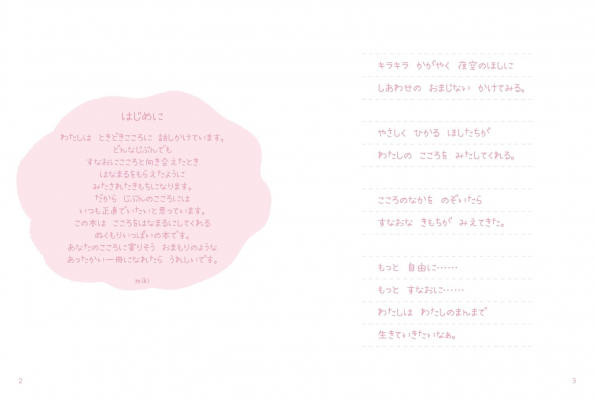 はじめに
わたしは ときどきこころに 話しかけています。
どんなじぶんでも
すなおにこころと向き合えたとき
はなまるをもらえたように
みたされたきもちになります。
だから じぶんのこころには
いつも正直でいたいと思っています。
この本は こころをはなまるにしてくれる
ぬくもりいっぱいの本です。
あなたのこころに寄りそう おまもりのような
あったかい一冊になれたら うれしいです。
miki
2
キラキラ かがやく 夜空のほしに
しあわせの おまじない かけてみる。
やさしく ひかる ほしたちが
わたしの こころを みたしてくれる。
こころのなかを のぞいたら
すなおな きもちが みえてきた。
もっと 自由に……
もっと すなおに……
わたしは わたしのまんまで
生きていきたいなぁ。
3